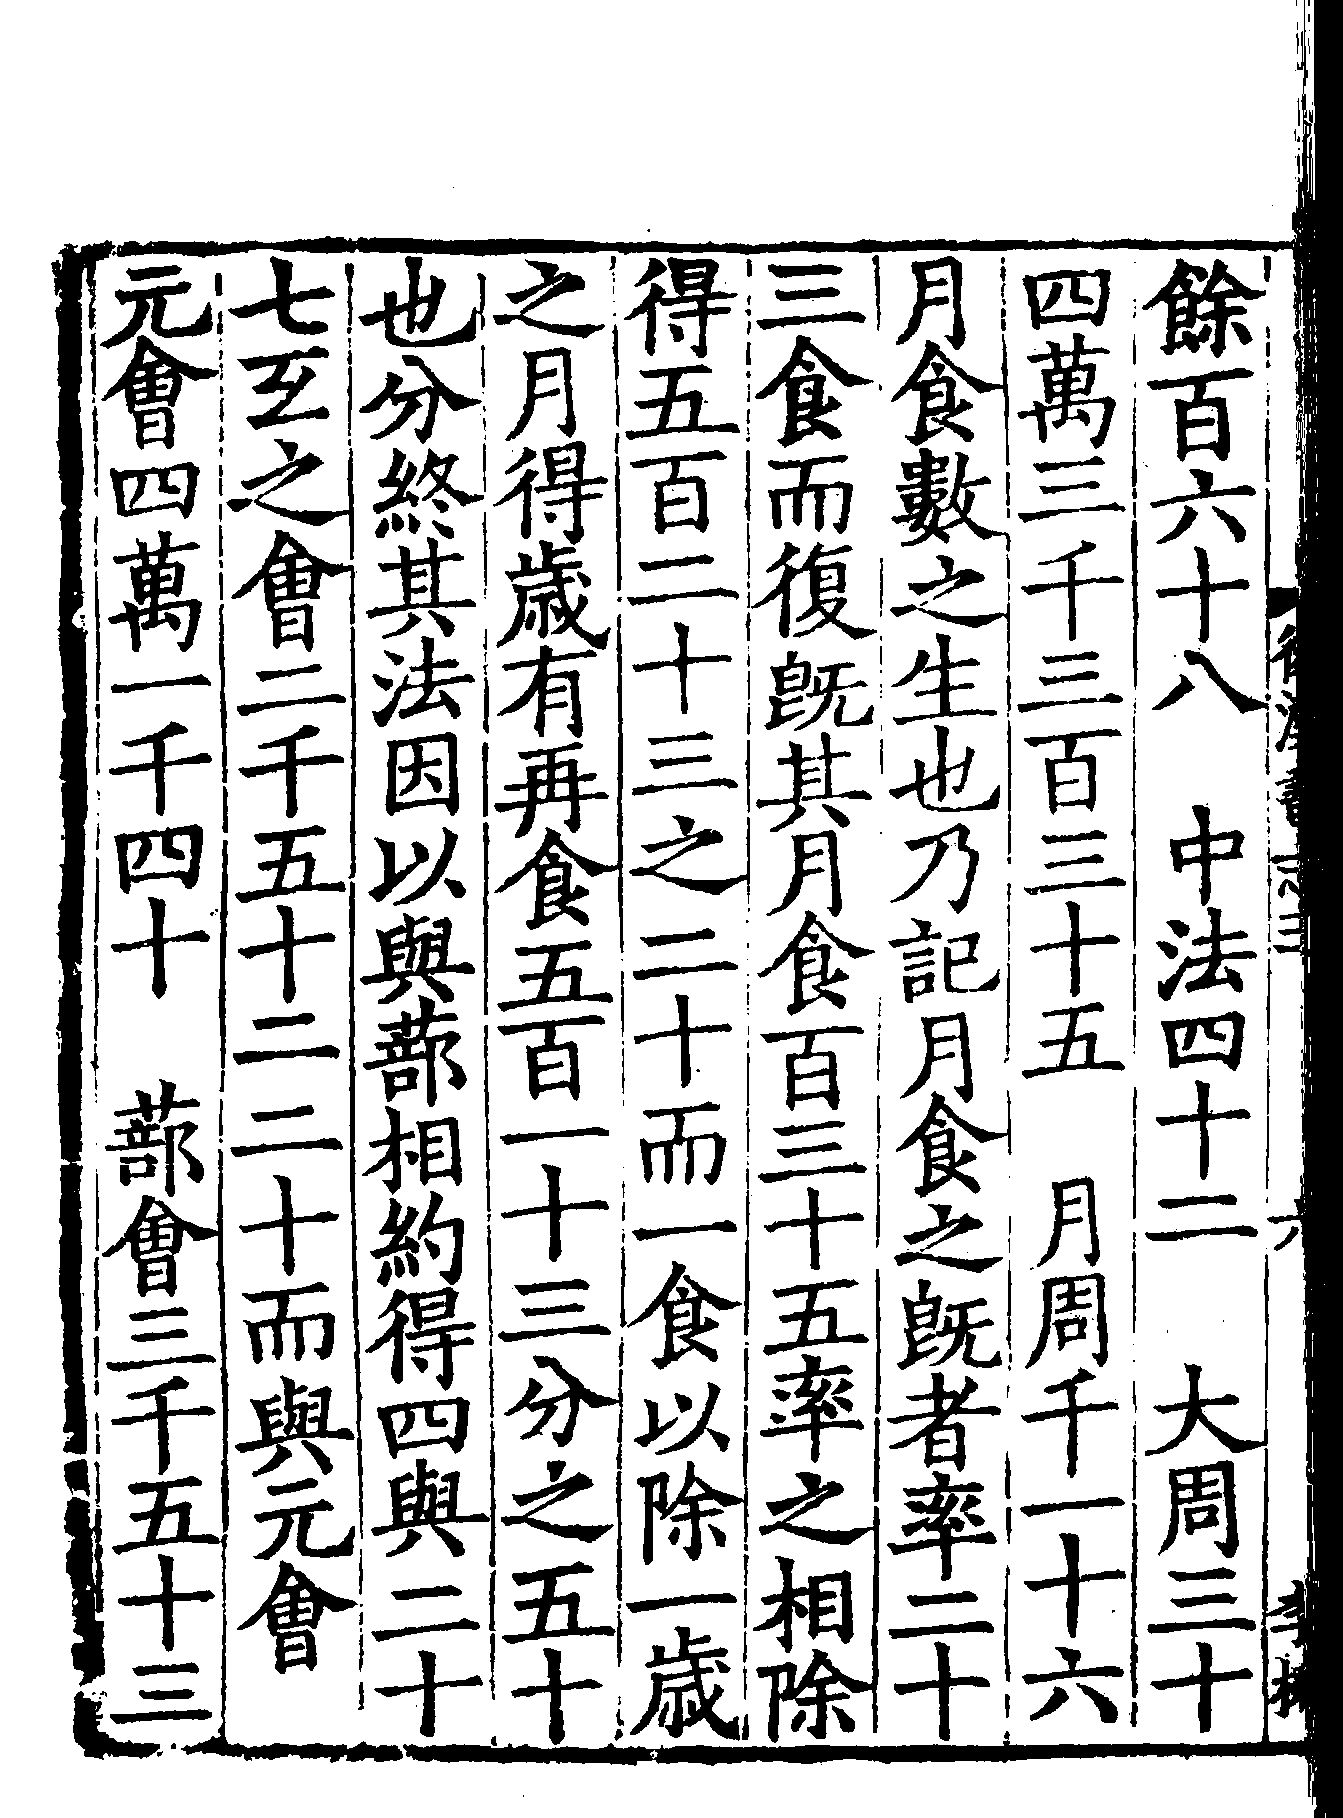 餘百六十八　中法四十二　大周三十
四萬三千三百三十五　月周千一十六
月食數之生也乃記月食之旣者率二十
三食而復旣其月食百三十五率之相除
得五百二十三之二十而一食以除一歲
之月得歲有再食五百一十三分之五十
也分終其法因以與蔀相約得四與二十
七㸦之會二千五十二二十而與元會
元會四萬一千四十　蔀會三千五十三